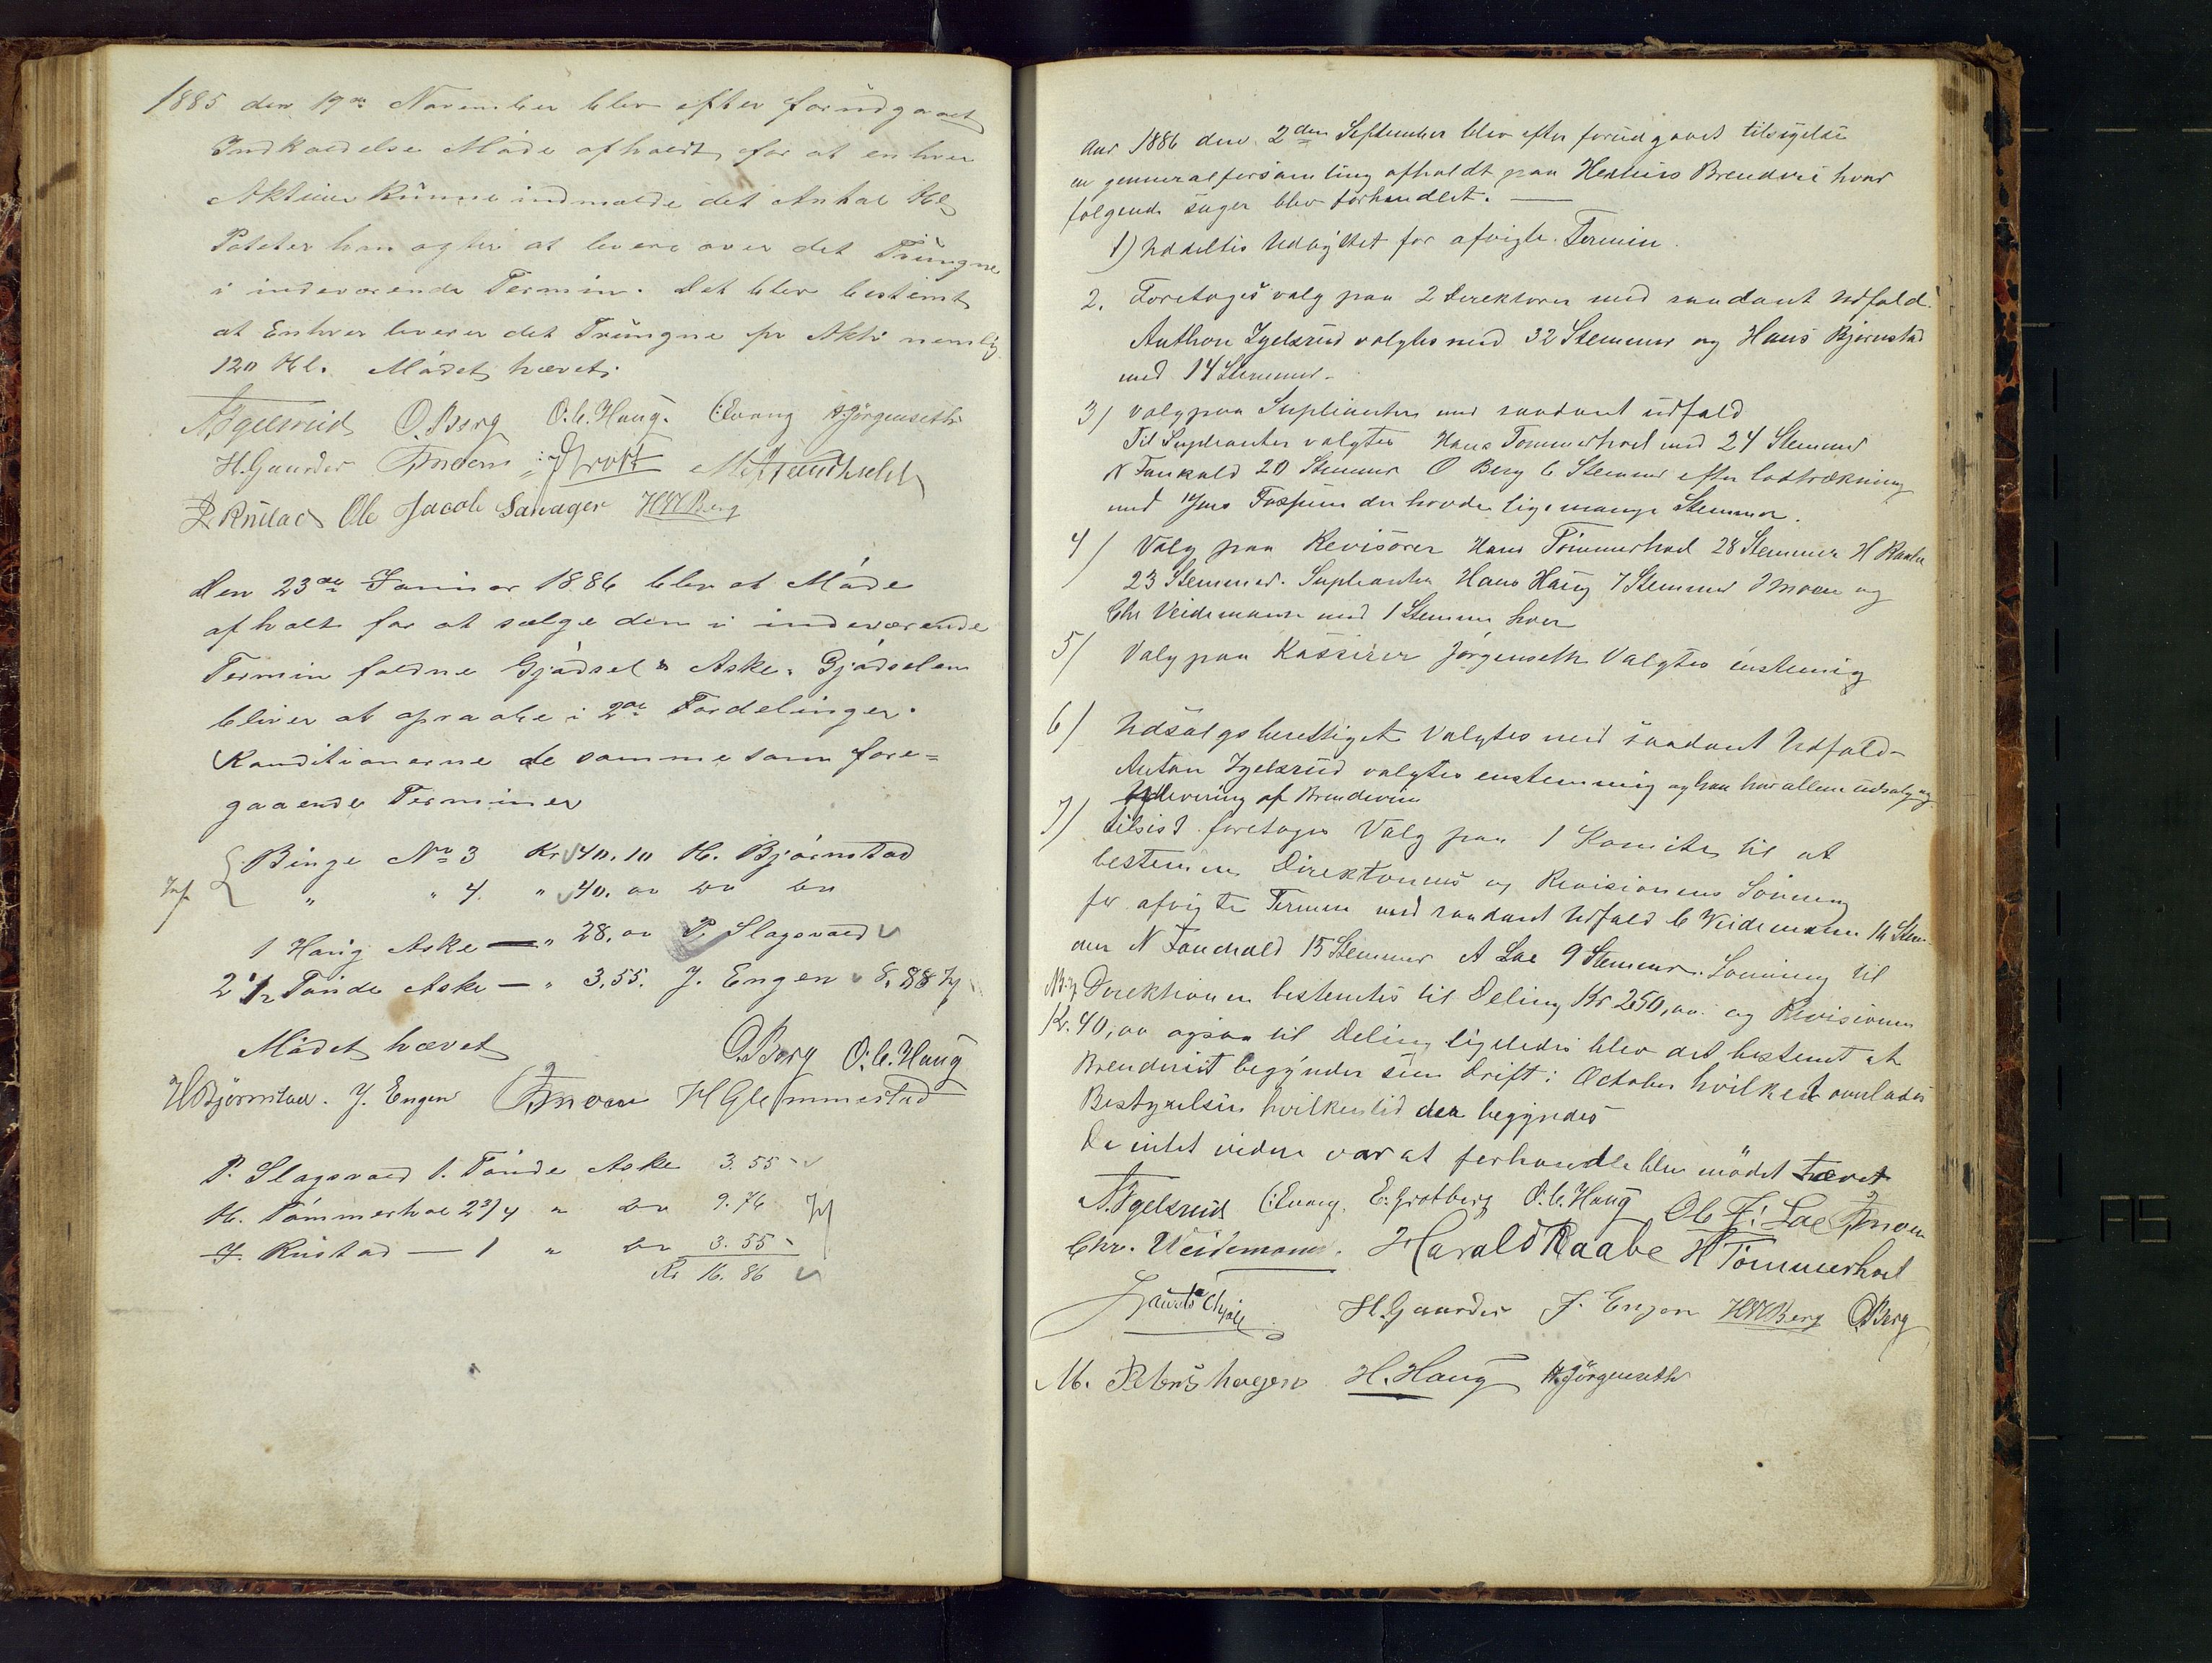 1885 den 19de November blev efter forudgaaet
Indkaldelse Möde afholdt, for at enhver
Aktieier kunne indmelde det Antal Hl
Poteter han agter at levere over det Tvungne
i indeværende Termin. Det blev bestemt
at Enhver leverer det Tvungne pr Aktie nemlig
120 Hl. Mödet hævet.
A. Igelsrud O. Berg O. C. Haug. C. Evang A. Jörgenseth
H. Gaarder O Moen M. Fauchald
Rustad Ole Jacob Savager HM Berg
Den 23de Januar 1886 blev et Möde
afholt for at sælge den i indeværende
Termin faldne Gjödsel & Aske. Gjödselen
bliver at opraabe i 2de Fordelinger.
Konditionerne de samme som fore=
gaaende Terminer
Binge No 3 Kr 40.10 H. Bjørnstad
" " 4. " 40.00 do do
1 Haug Aske — " 28.00 P. Slagsvold
2 1/2 Tønde Aske — " 3.55. J. Engen 8,88
Mödet hævet
O. Berg O. C. Haug
H Bjørnstad. J. Engen O Moen H Glemmestad
P. Slagsvold 1. Tønde Aske 3.55
H. Tömmerhol 2 3/4 " do 9.76
J. Rustad — 1 " do 3.55
Kr 16.86
Aar 1886 den 2den September blev efter forudgaaet tilsigelse
en generalforsamling afholdt paa Hexhus Brenderi hvor
følgende sager blev forhandlet. —
1) Uddeltes Udbyttet for afvigte Termin.
2. Foretoges valg paa 2 Direktører med saadant Udfald.
Anthon Igelsrud valgtes med 32 Stemmer og Hans Bjørnstad
med 14 Stemmer.
3) valg paa Suplianter med saadant udfald
Til Suplianter valgtes Hans Tommerhol med 24 Stemmer
N Faukald 20 Stemmer O Berg 6 Stemmer efter lodtrækning
med Jens Fossum der havde lige mange Stemmer.
4) Valg paa Revisorer Hans Tömmerhol 28 Stemmer H Raabe
23 Stemmer. Suplianter Hans Haug 7 Stemmer O Moen og
Chr Veidemann med 1 Stemme hver
5) Valg paa Kasserer Jörgenseth Valgtes enstemig
6) Udsalgsberettiget Valgtes med saadant Udfald
Anton Igelsrud valgtes enstemmig og han har allene udsalg og
Udlevering af Brendevin
7) tilsist foretoges Valg paa 1 Komite til at
bestemme Direktionens og Revisionens Lönning
for afvigte Termin med saadant Udfald C Veidemann 16 Stem-
mer N Fauchald 15 Stemmer A Lae 9 Stemmer. Lönning til
Direktionen bestemtes til Deling Kr 250,00 og Revisionen
Kr. 40,00 ogsaa til Deling ligeledes blev det bestemt at
Brenderiet begynder sin Drift i October hvilket overlades
Bestyrelsen hvilken tid den begyndes
Da intet videre var at forhandle blev mödet hævet
A. Igelsrud C. Evang. E. Grøtberg O. C. Haug Ole F. Lae O Moen
Chr. Weidemann. Harald Raabe H Tömmerhol
H. Gaarder J. Engen HM Berg O. Berg
M. Petershagen H. Haug A. Jörgenseth